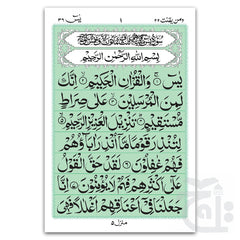 ومن يقنت ٢٢ ١ يٰسٓ ٣٦
بِسْمِ اللهِ الرَّحْمٰنِ الرَّحِيْمِ
يٰسٓ ۝ وَالْقُرْاٰنِ الْحَكِيْمِ ۝ اِنَّكَ
لَمِنَ الْمُرْسَلِيْنَ ۝ عَلٰى صِرَاطٍ
مُّسْتَقِيْمٍ ۝ تَنْزِيْلَ الْعَزِيْزِ الرَّحِيْمِ ۝
لِتُنْذِرَ قَوْمًا مَّاۤ اُنْذِرَ اٰبَآؤُهُمْ
فَهُمْ غٰفِلُوْنَ ۝ لَقَدْ حَقَّ الْقَوْلُ
عَلٰٓى اَكْثَرِهِمْ فَهُمْ لَا يُؤْمِنُوْنَ ۝ اِنَّا
جَعَلْنَا فِيْۤ اَعْنَاقِهِمْ اَغْلٰلًا فَهِيَ
منزل ٥